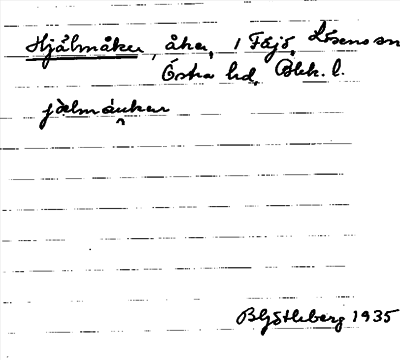 Hjälmåker, åker, 1 Fäjö, Lösens sn
Östra hd, Blek. l.
jälmåukar
B Götleberg 1935